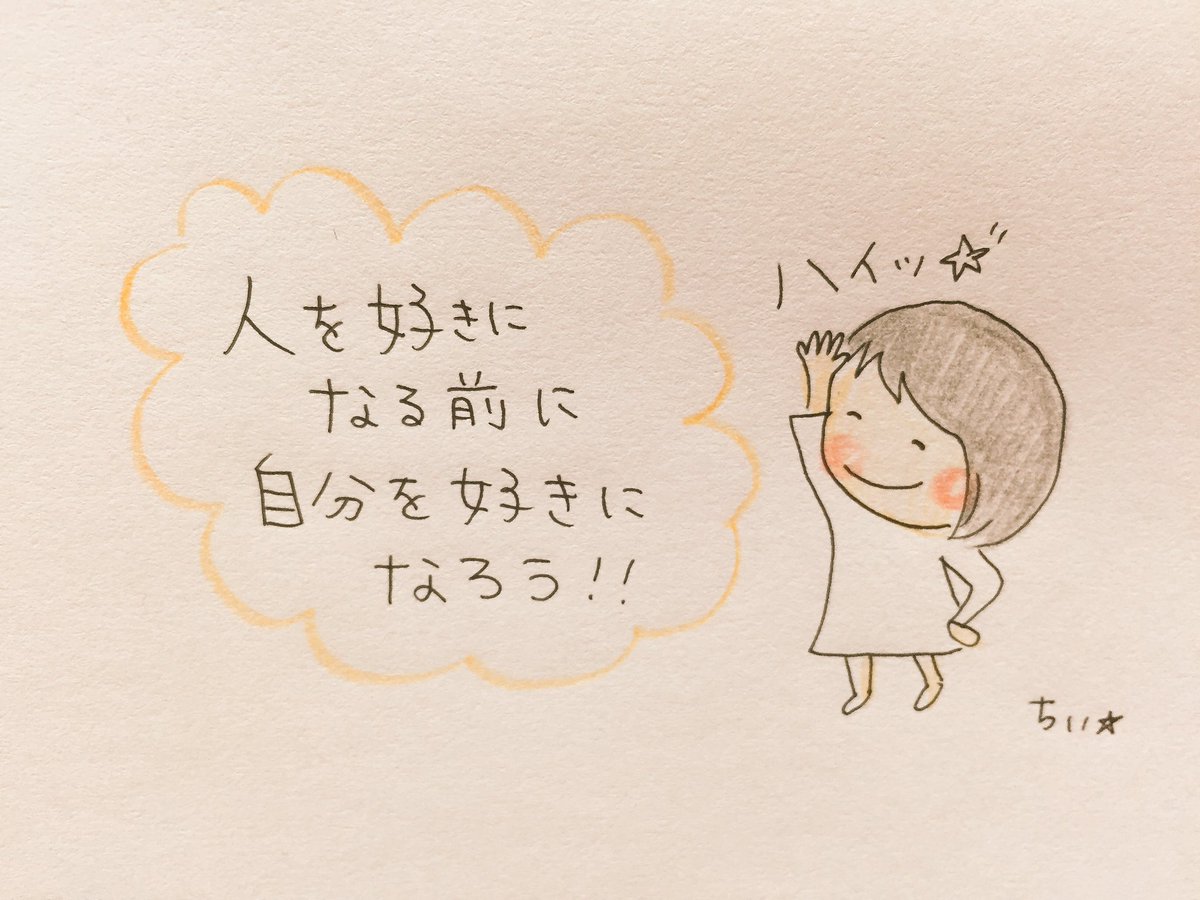 人を好きに
なる前に
自分を好きに
なろう!!
ハイッ☆
ちぃ★